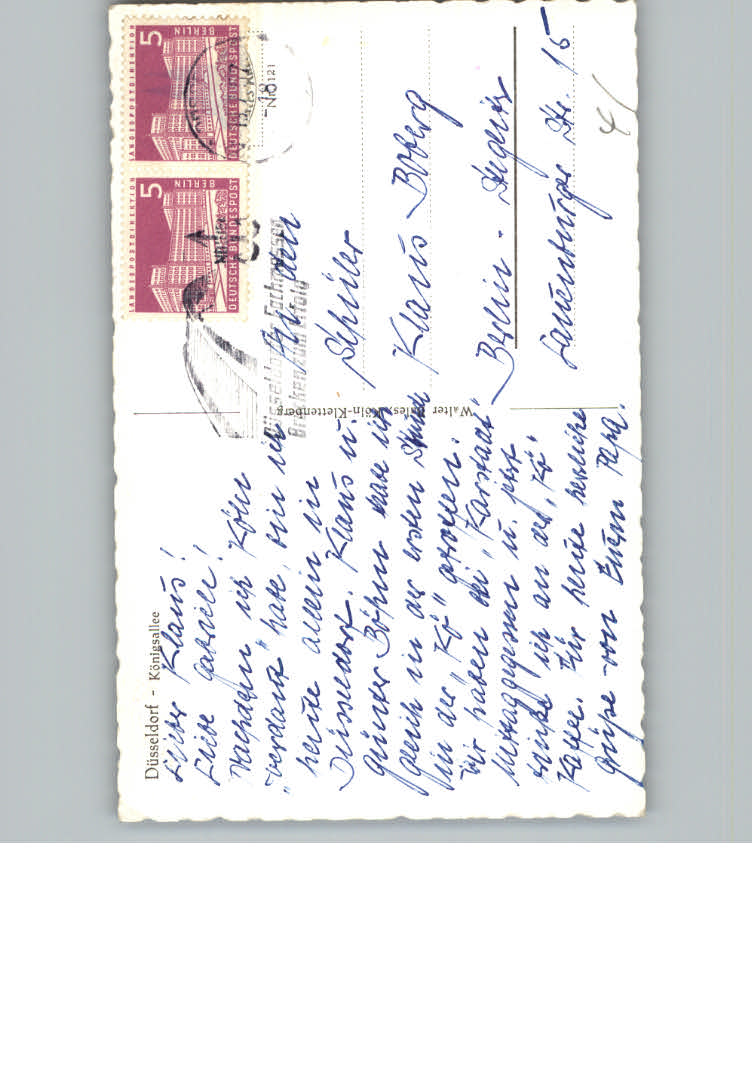 Düsseldorf - Königsallee
Lieber Klaus!
Liebe Gabriele!
Nachdem ich Köln
„verdaut" habe, bin ich
heute allein in
Düsseldorf. Klaus u.
Günter Böhm habe ich
gleich in der ersten Stunde
in der „Kö" getroffen.
Wir haben bei „Karstadt"
Mittaggegessen u. jetzt
trinke ich an der „Kö"
Kaffee. Für heute herzliche
Grüße von Eurem Papa.
Walter Köln-Klettenberg
Nr. 121
-18
LANDESPOSTDIREKTION
BERLIN
5
DEUTSCHE BUNDESPOST
LANDESPOSTDIREKTION
BERLIN
5
DEUTSCHE BUNDESPOST
Düsseldorfer Fachmessen
Brücken zum Erfolg
An den
Schüler
Klaus Boberg
Berlin - Steglitz
Lauenburger Str. 15